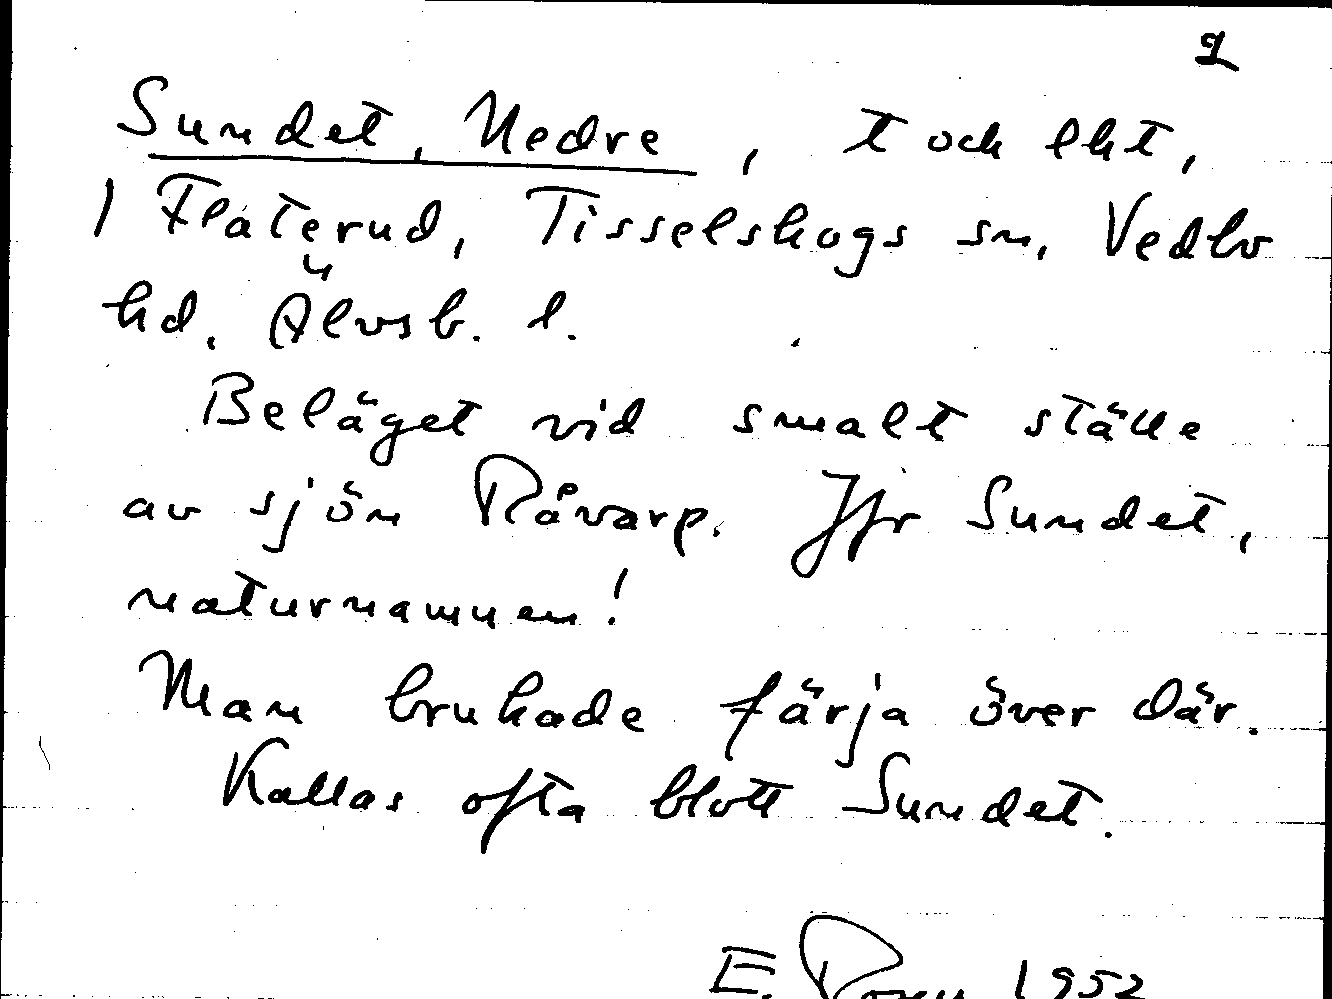 2
Sundet, Nedre, t och lht,
1 Flaterud, Tisselskogs sn, Vedbo
hd. Älvsb. l.
Beläget vid smalt ställe
av sjön Råvarp. Jfr Sundet,
naturnamnen!
Man brukade färja över där.
Kallas ofta blott Sundet.
E. 1952